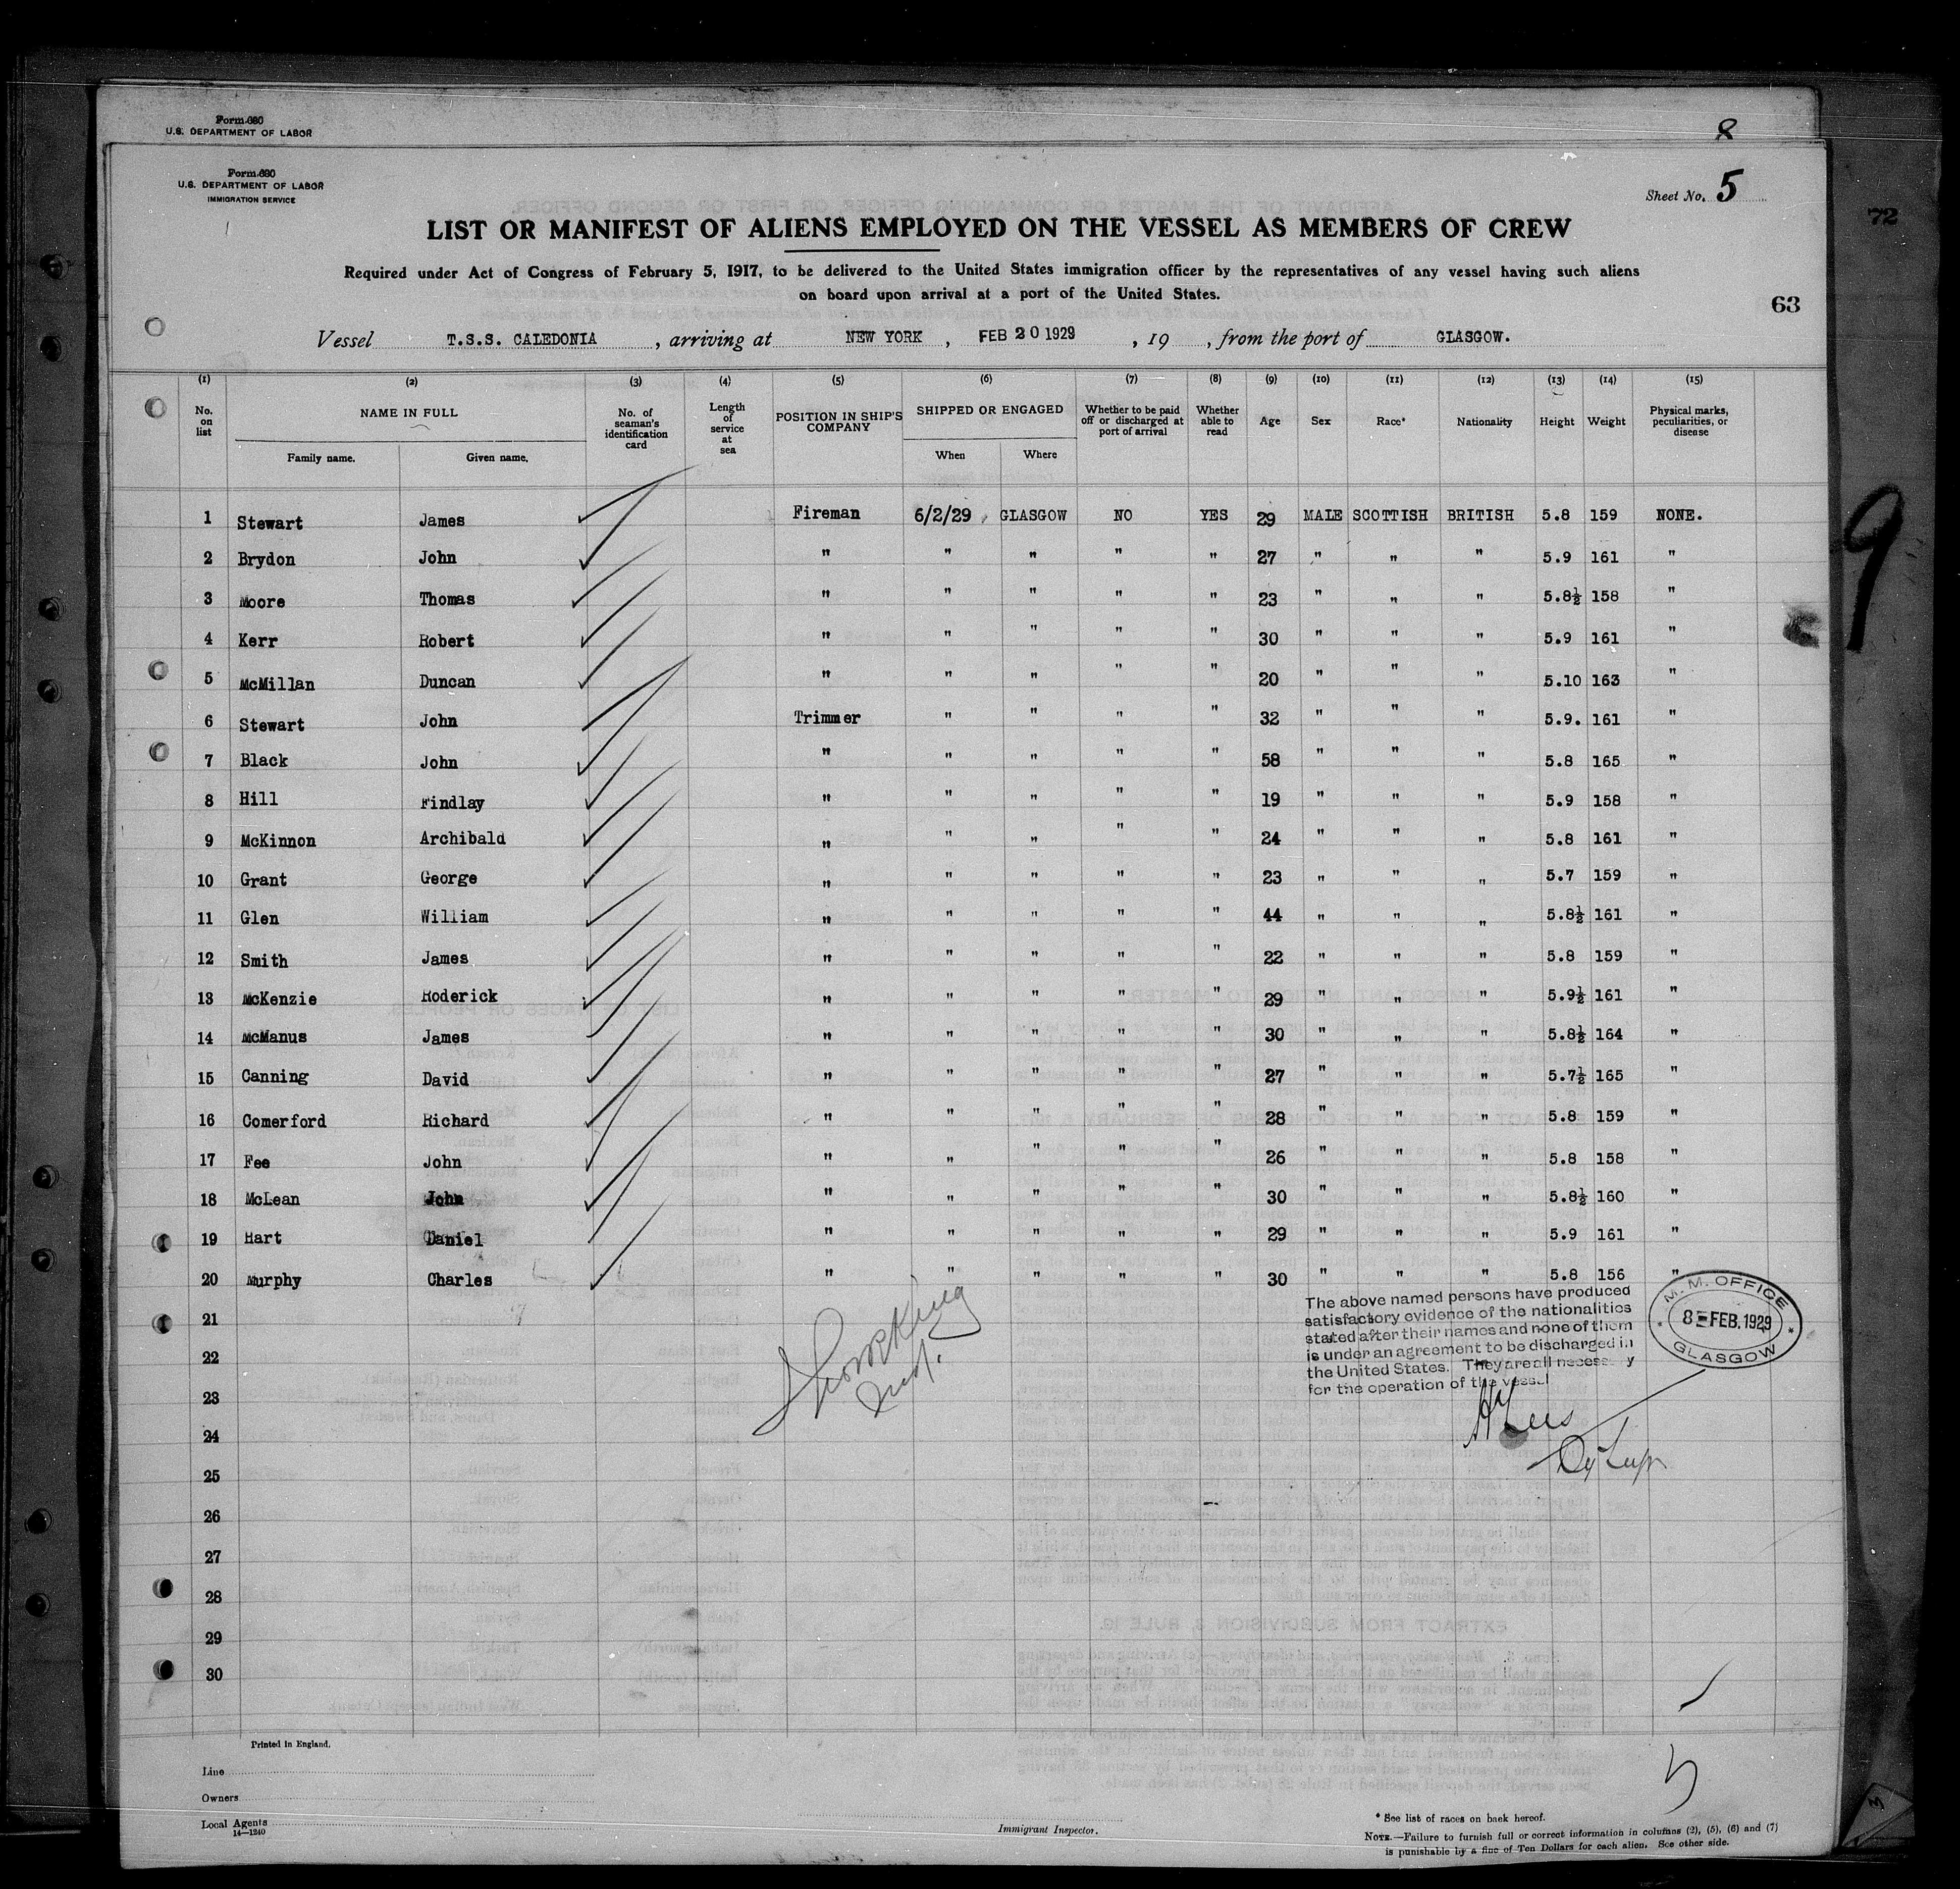 Form 680
U.S. DEPARTMENT OF LABOR
8
Form 680
U.S. DEPARTMENT OF LABOR
IMMIGRATION SERVICE
Sheet No. 5
72
LIST OR MANIFEST OF ALIENS EMPLOYED ON THE VESSEL AS MEMBERS OF CREW
Required under Act of Congress of February 5, 1917, to be delivered to the United States immigration officer by the representatives of any vessel having such aliens
on board upon arrival at a port of the United States.
63
Vessel T.S.S. CALEDONIA, arriving at NEW YORK, FEB 20 1929, 19 , from the port of GLASGOW.
(1) (2) (3) (4) (5) (6) (7) (8) (9) (10) (11) (12) (13) (14) (15)
No. on list NAME IN FULL Family name. Given name. No. of seaman's identification card Length of service at sea POSITION IN SHIP'S COMPANY SHIPPED OR ENGAGED When Where Whether to be paid off or discharged at port of arrival Whether able to read Age Sex Race* Nationality Height Weight Physical marks, peculiarities, or disease
1 Stewart James Fireman 6/2/29 GLASGOW NO YES 29 MALE SCOTTISH BRITISH 5.8 159 NONE.
2 Brydon John " " " " " 27 " " " 5.9 161 "
3 Moore Thomas " " " " " 23 " " " 5.8½ 158 "
4 Kerr Robert " " " " " 30 " " " 5.9 161 "
5 McMillan Duncan " " " " " 20 " " " 5.10 163 "
6 Stewart John Trimmer " " " " 32 " " " 5.9. 161 "
7 Black John " " " " " 58 " " " 5.8 165 "
8 Hill Findlay " " " " " 19 " " " 5.9 158 "
9 McKinnon Archibald " " " " " 24 " " " 5.8 161 "
10 Grant George " " " " " 23 " " " 5.7 159 "
11 Glen William " " " " " 44 " " " 5.8½ 161 "
12 Smith James " " " " " 22 " " " 5.8 159 "
13 McKenzie Roderick " " " " " 29 " " " 5.9½ 161 "
14 McManus James " " " " " 30 " " " 5.8½ 164 "
15 Canning David " " " " " 27 " " " 5.7½ 165 "
16 Comerford Richard " " " " " 28 " " " 5.8 159 "
17 Fee John " " " " " 26 " " " 5.8 158 "
18 McLean John " " " " " 30 " " " 5.8½ 160 "
19 Hart Daniel " " " " " 29 " " " 5.9 161 "
20 Murphy Charles " " " " " 30 " " " 5.8 156 "
21
22
23
24
25
26
27
28
29
30
The above named persons have produced
satisfactory evidence of the nationalities
stated after their names and none of them
is under an agreement to be discharged in
the United States. They are all necessary
for the operation of the vessel
M. M. OFFICE
8 FEB. 1929
GLASGOW
9
Printed in England.
Line
Owners
Local Agents
14—1240
Immigrant Inspector.
* See list of races on back hereof.
NOTE.—Failure to furnish full or correct information in columns (2), (5), (6) and (7)
is punishable by a fine of Ten Dollars for each alien. See other side.